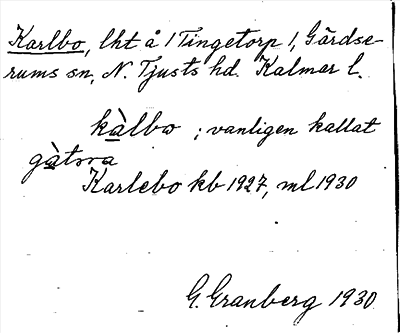 Karlbo, lht å 1 Tingetorp 1, Gärdse-
rums sn, N. Tjusts hd. Kalmar l.
kàlbo ; vanligen kallat
gàtsra
Karlebo kb 1927, ml 1930
G. Granberg 1930